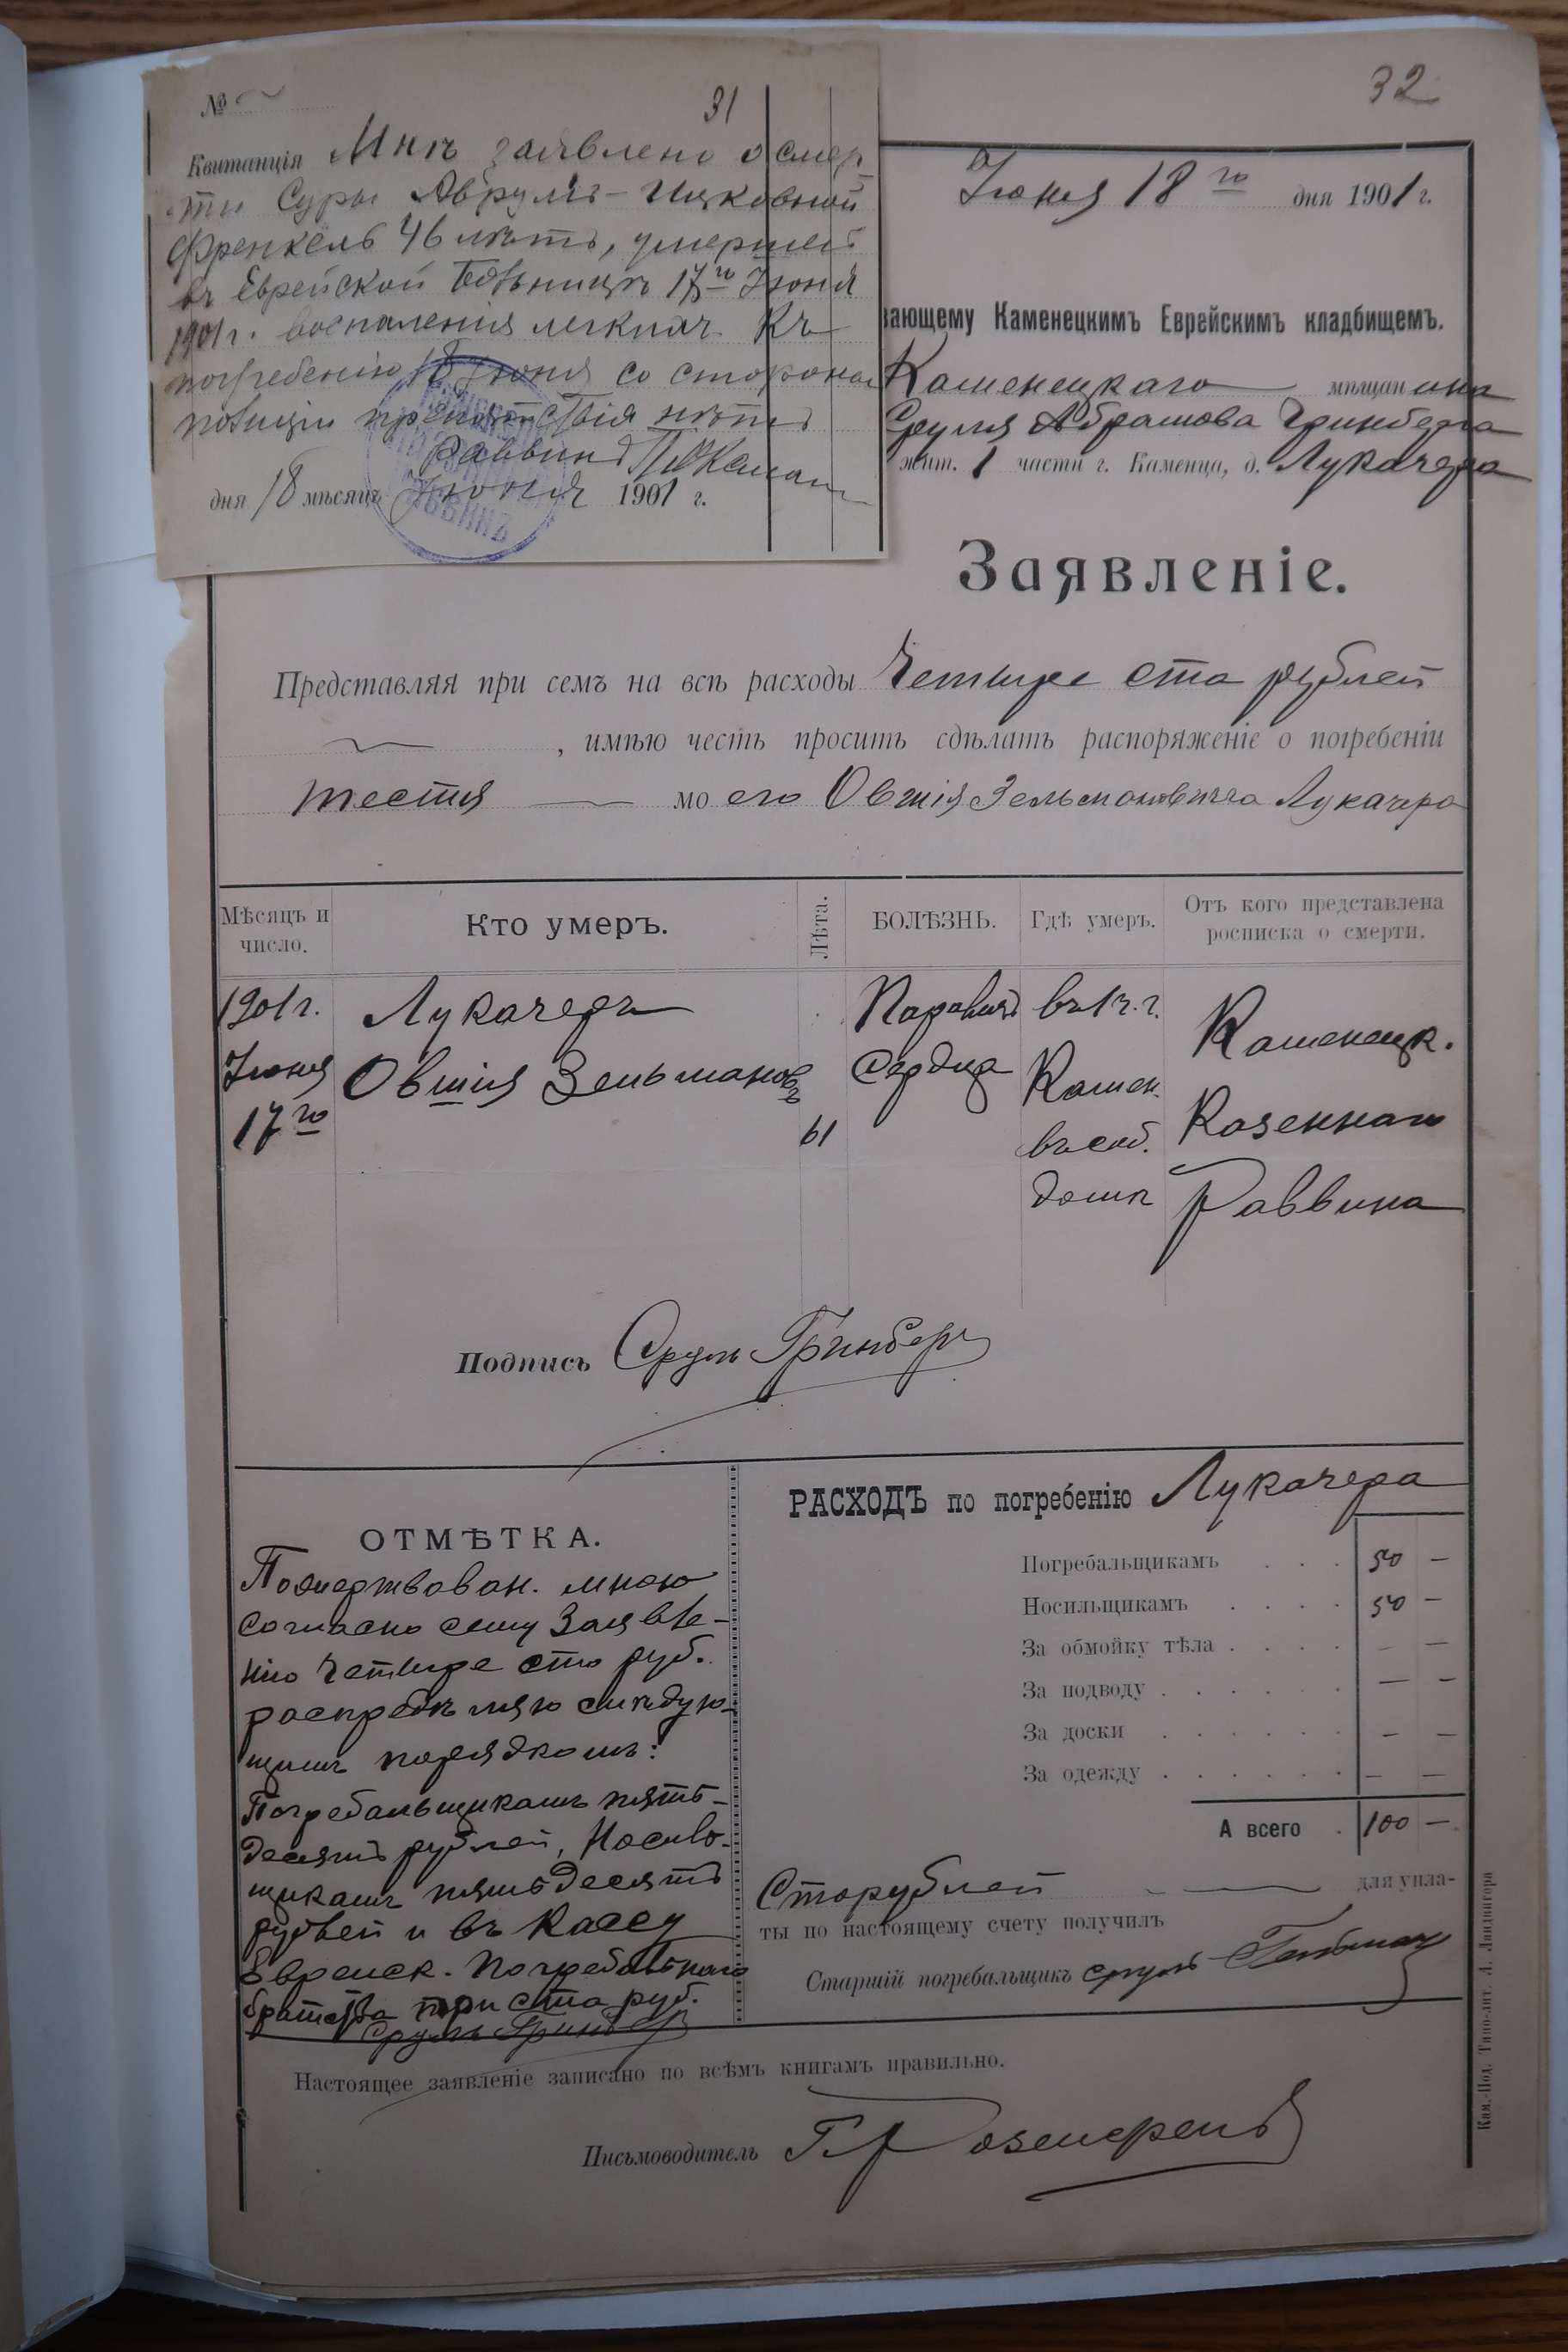 №
31
Квитанція Мнѣ заявлено о смер-
ти Суры Аврумъ-Ицковной
Френкель 46 лѣтъ, умершей
въ Еврейской Больницѣ 17го Іюня
1901 г. воспаленія легкихъ. Къ
погребенію 18 Іюня со стороны
полиціи препятствія нѣтъ
Раввинъ
дня 18 мѣсяцъ Іюня 1901 г.
32
Іюня 18го дня 1901 г.
вающему Каменецкимъ Еврейскимъ кладбищемъ.
Каменецкаго мѣщанина
Сруля Абрамова Гринберга
жит. 1 части г. Каменца, д. Лукачера
Заявленіе.
Представляя при семъ на всѣ расходы Четыре ста рублей
, имѣю честь просить сдѣлать распоряженіе о погребеніи
тестя моего Овшія Зельмановича Лукачера
Мѣсяцъ и число. Кто умеръ. Лѣта. БОЛѢЗНЬ. Гдѣ умеръ. Отъ кого представлена росписка о смерти.
1901 г. Лукачеръ Параличъ въ 1 ч. г. Каменецк.
Іюня Овшія Зельмановъ Сердца Камен. Казеннаго
17го 61 въ соб. Раввина
домѣ
Подпись Сруль Гринберг
ОТМѢТКА.
Пожертвован. мною
согласно сему Заявле-
нію Четыре сто руб.
распредѣляю слѣдую-
щимъ порядкомъ:
Погребальщикамъ пять-
десятъ рублей, Носиль-
щикамъ пятьдесятъ
рублей и въ Кассу
Еврейск. Погребальнаго
братства три ста руб.
Сруль Гринберг
РАСХОДЪ по погребенію Лукачера
Погребальщикамъ . . . 50 —
Носильщикамъ . . . . 50 —
За обмойку тѣла . . . . — —
За подводу . . . . . . — —
За доски . . . . . . — —
За одежду . . . . . . — —
А всего . 100 —
Сто рублей для упла-
ты по настоящему счету получилъ
Старшій погребальщикъ Сруль
Настоящее заявленіе записано по всѣмъ книгамъ правильно.
Письмоводитель
Кам.-Под. Типо-лит. Л. Ландвигера